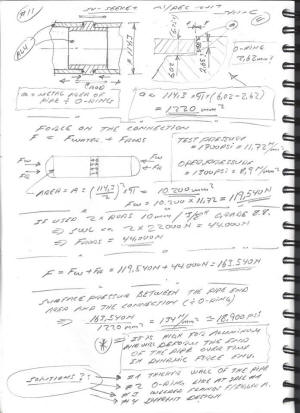 #11
a = METAL AREA OF PIPE ÷ O-RING
O-RING
2,62mm
a = 114,3 × π × (6,02-2,62)
= 1220 mm²
FORCE ON THE CONNECTION
F = FWATER + FRODS
TEST PRESSURE
= 1700PSI = 11,72 N/mm²
OPER. PRESSURE
= 1300PSI = 8,9 N/mm²
AREA = A = (114,3/2)² π = 10.200 mm²
FW = 10.200 × 11,72 = 119,540N
IS USED 2 × RODS 10mm / 3/8" GRADE 8.8
⇒ SWL ca 2 × 22000N = 44.000N
⇒ FRODS = 44,000N
F = FW + FR = 119,540 + 44,000N = 163,540N
SURFACE PRESSURE BETWEEN THE PIPE END
AREA AND THE CONNECTION (÷ O-RING)
⇒ 163,540N / 1220 mm² = 134 N/mm² = 18,900 PSI
* = IT IS HIGH FOR ALUMINIUM
AND WILL DEFORM THE END
OF THE PIPE OVER TIME
IN DYNAMIC FORCE ENV.
SOLUTIONS ?:
#1 THICKER WALL OF THE PIPE
#2 O-RING
#3 WELDED FLANGS
#4 DIFFERENT DESIGN